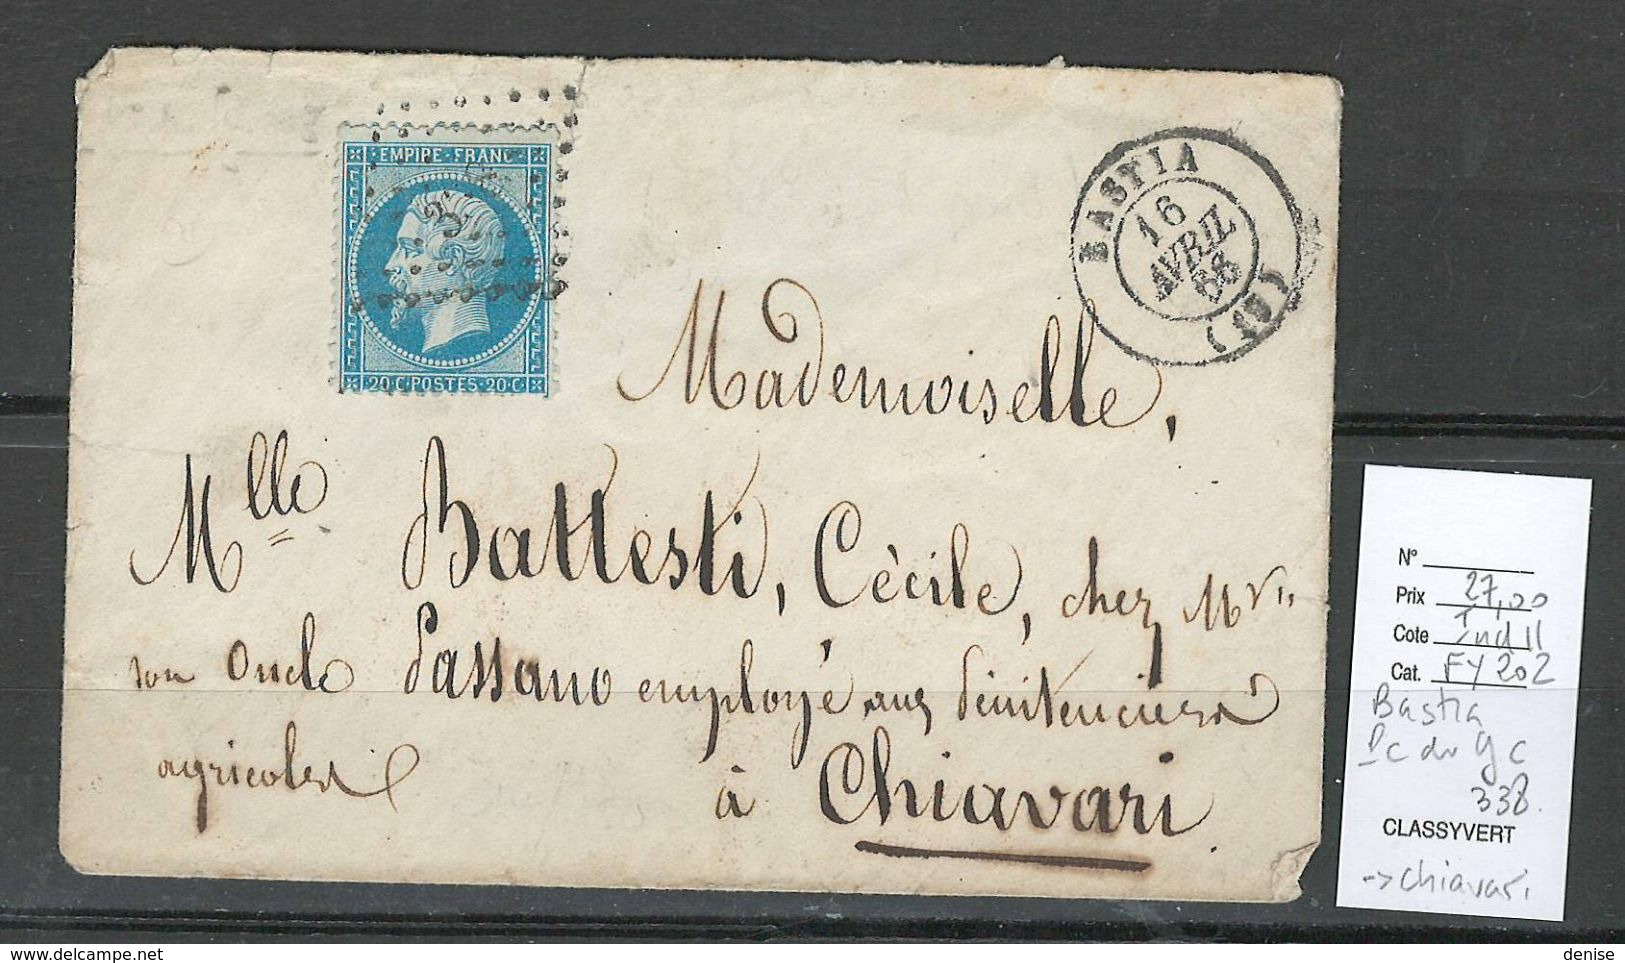 EMPIRE · FRANC
20·C·POSTES·20·C·
BASTIA
16
AVRIL
68
Mademoiselle,
Mlle Battesti, Cécile, chez Mr
son Oncle Passano employé aux Pénitenciers
agricoles
à Chiavari
N°
Prix 27,00
Cote Ind 11
Cat. FY 202
Bastia
Pc du Gc
338.
CLASSYVERT
-> chiavari
www.delcampe.net
denise